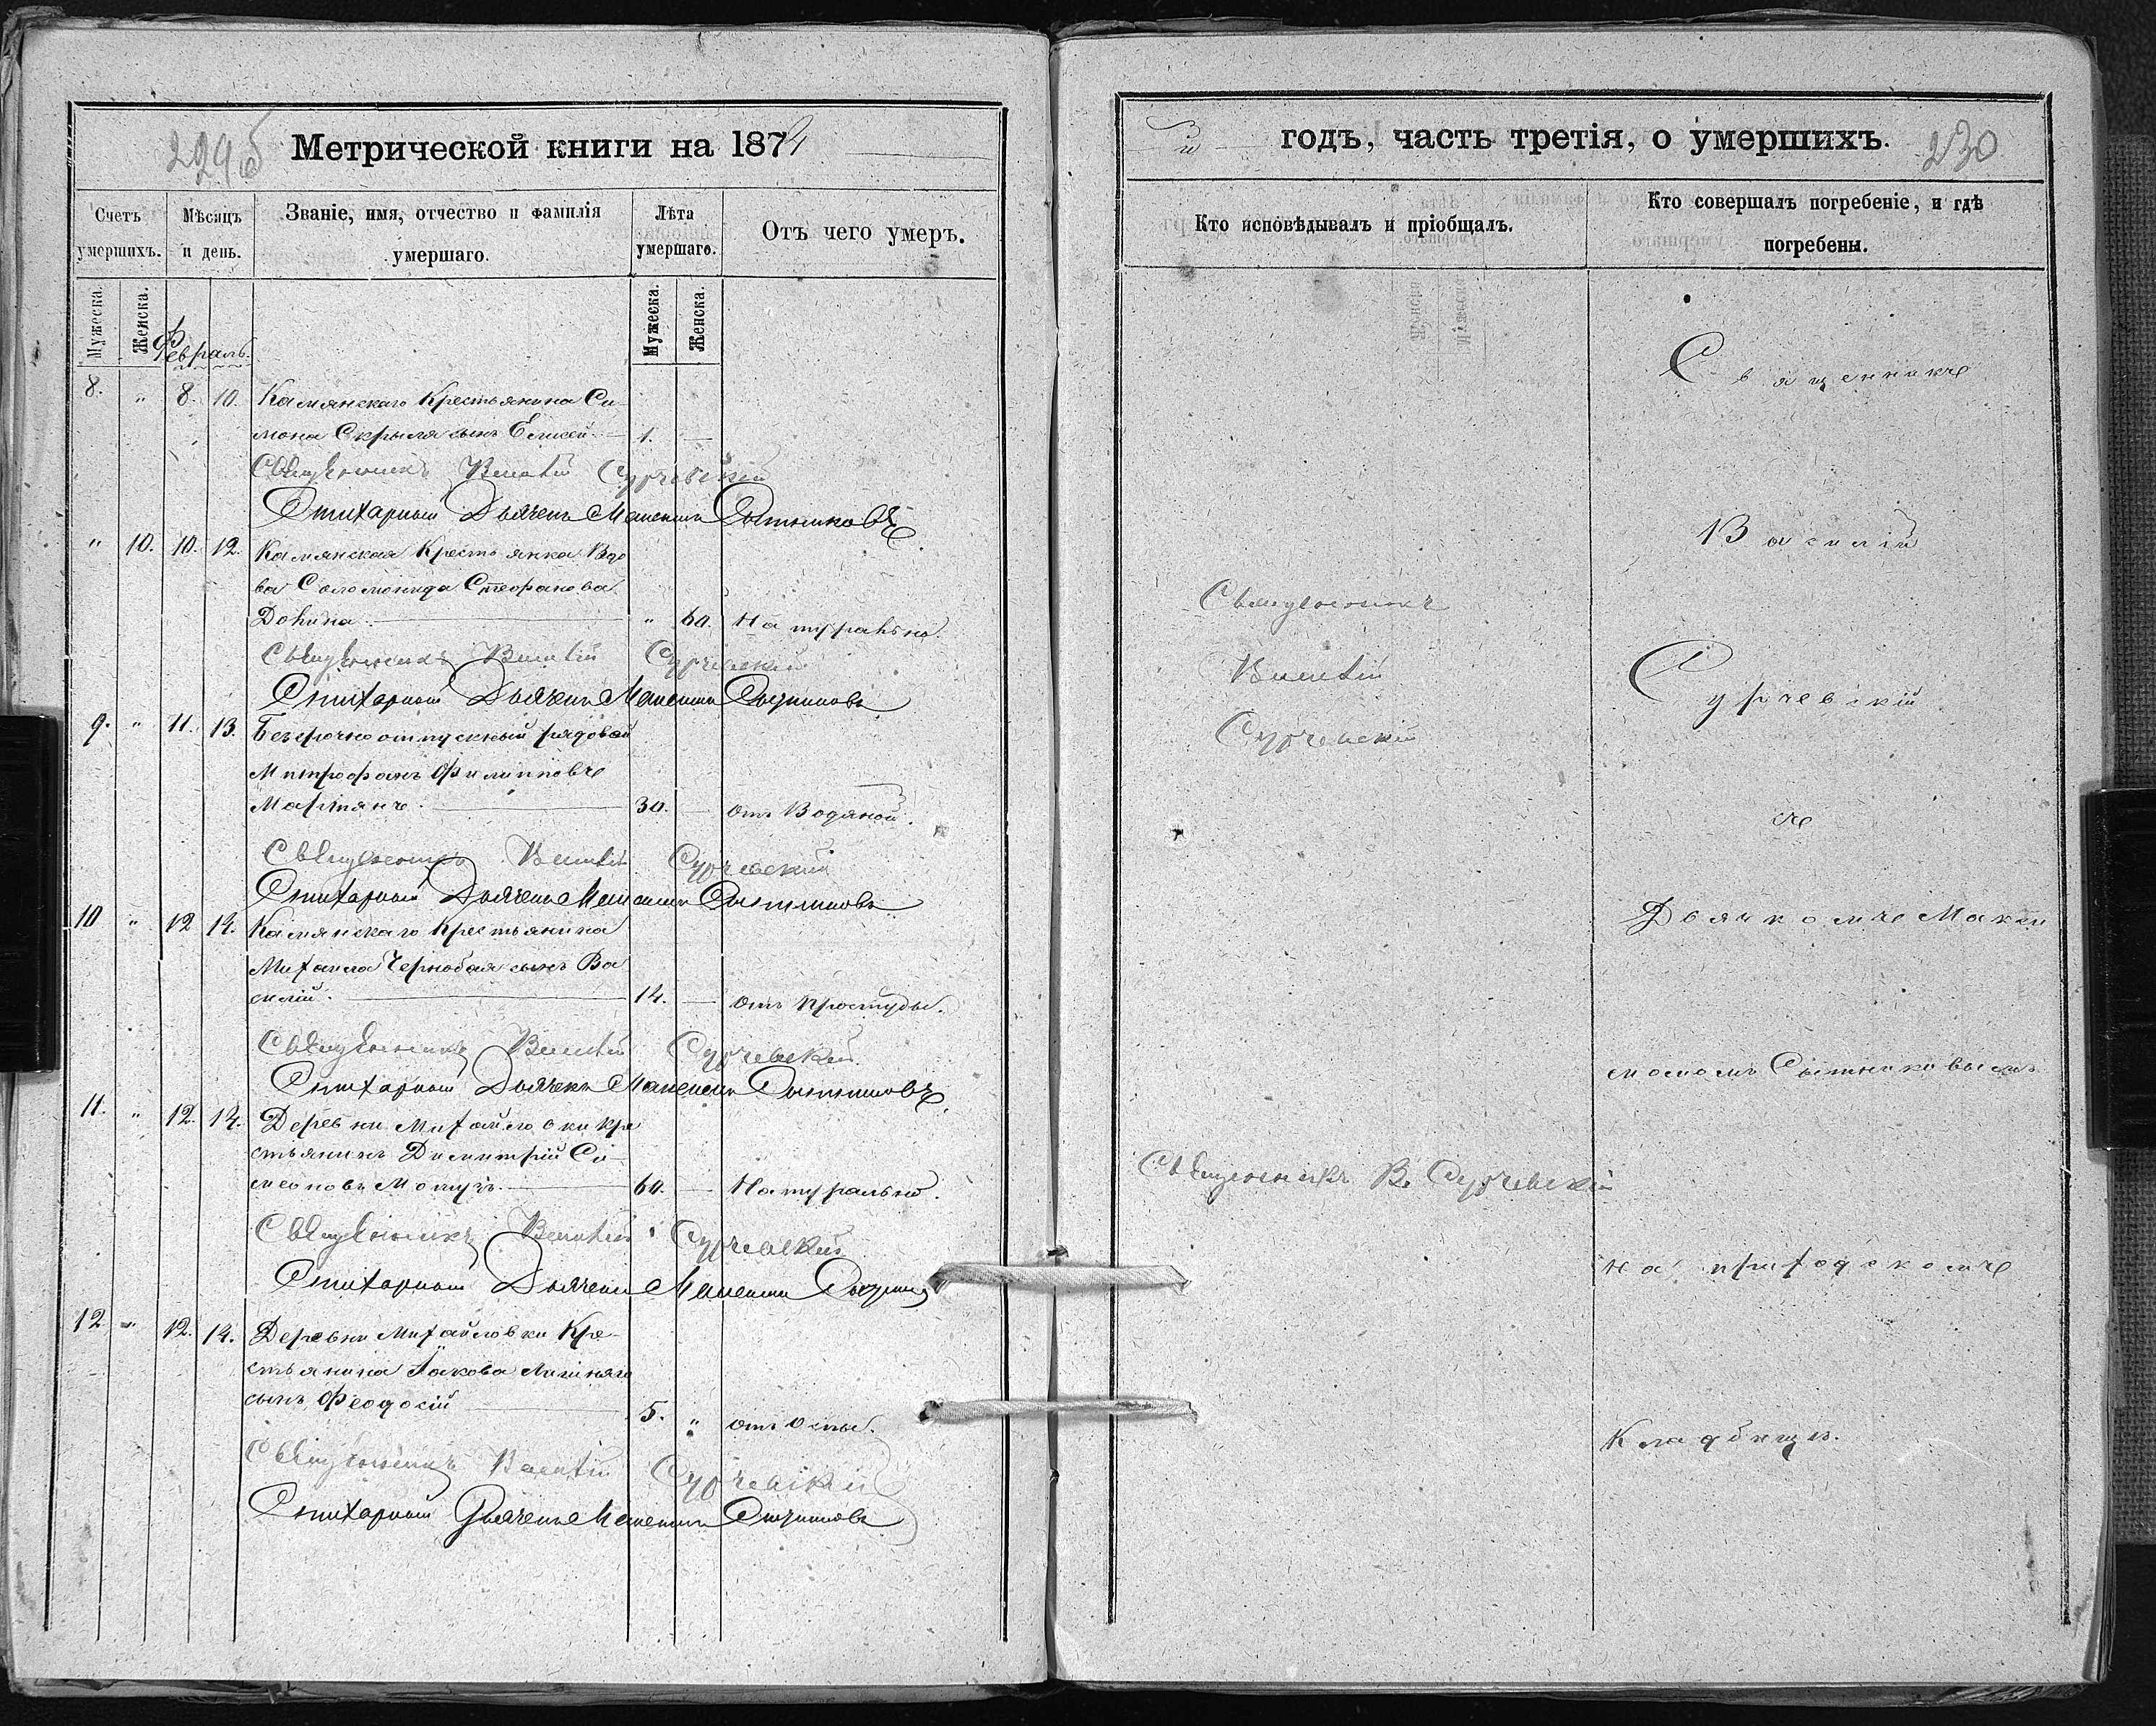 229об
Метрической книги на 187
Счетъ умершихъ.
Мѣсяцъ и день.
Званіе, имя, отчество и фамилія умершаго.
Лѣта умершаго.
Отъ чего умеръ.
Мужеска.
Женска.
Мужеска.
Женска.
Февраль.
8. " 8. 10. Камянскаго Крестьянина Си-
мона Скрыля сынъ Елисей. — 1. —
Священникъ Василій Сурчевскій
Стихарный Дьячекъ Максимъ Сытниковъ
" 10. 10. 12. Камянская Крестьянка Вдо
ва Соломонида Стефанова
— " 60. Натурально.
Священникъ Василій Сурчевскій
Стихарный Дьячекъ Максимъ Сытниковъ
9. " 11. 13. Безсрочноотпускный рядовой
Митрофанъ Филипповъ
— 30. — отъ Водяной.
Священникъ Василій Сурчевскій
Стихарный Дьячекъ Максимъ Сытниковъ
10 " 12 14. Камянскаго Крестьянина
Михаила Чернобая сынъ Ва
силій. — 14. — отъ простуды.
Священникъ Василій Сурчевскій
Стихарный Дьячекъ Максимъ Сытниковъ
11. " 12. 14. Деревни Михайловки кре
стьянинъ Димитрій Си-
меоновъ — 60. — Натурально.
Священникъ Василій Сурчевскій
Стихарный Дьячекъ Максимъ Сытниковъ
12 " 12. 14. Деревни Михайловки Кре-
стьянина Іакова
сынъ Феодосій — 5. " отъ Оспы.
Священникъ Василій Сурчевскій
Стихарный Дьячекъ Максимъ Сытниковъ
й — годъ, часть третія, о умершихъ.
230
Кто исповѣдывалъ и пріобщалъ.
Кто совершалъ погребеніе, и гдѣ погребены.
Священникъ
Василій
Сурчевскій
Священникъ В. Сурчевскій
Священникъ
Василій
Сурчевскій
съ
Дьячкомъ Макси
момъ Сытниковымъ
на приходскомъ
Кладбищѣ.